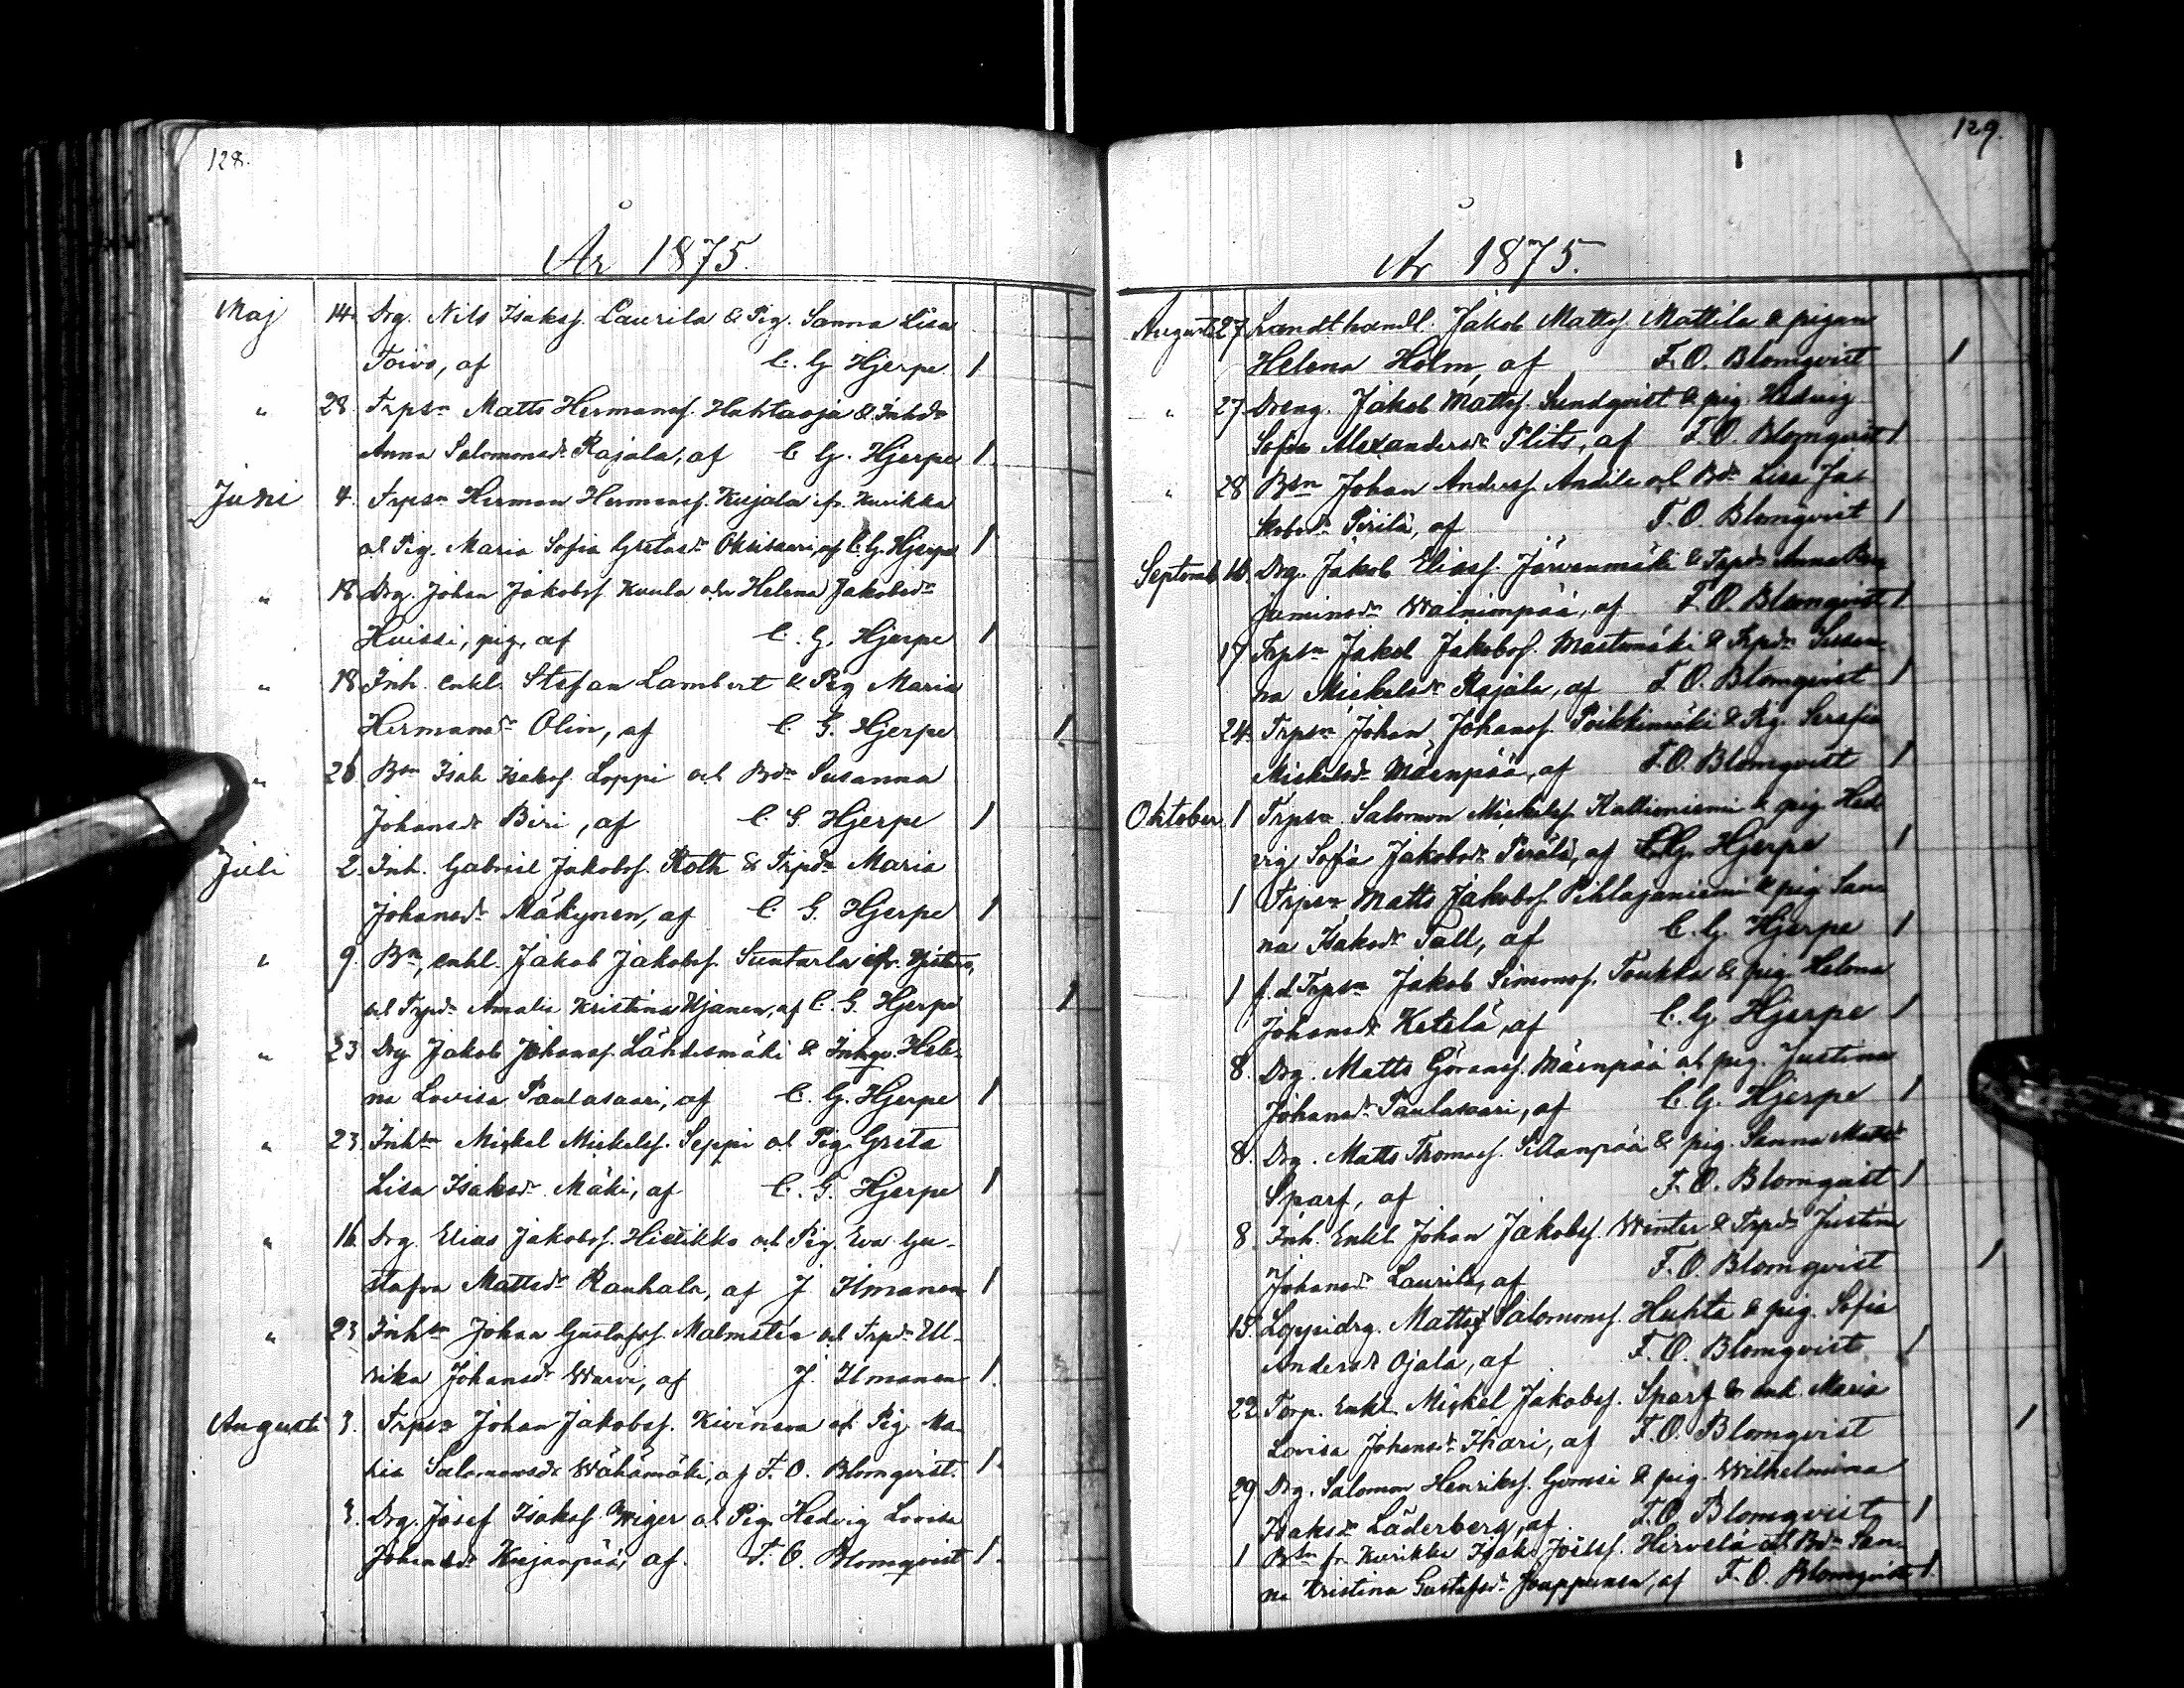 128.
År 1875.
Maj 14. Drg. Nils Isaksf. Laurila & Pig. Sanna Lisa
Toivo, af C. G. Hjerpe 1
" 28. Trpsn Matts Hermansf. Huhtaoja & Inhdr
Anna Salomonsdr Rajala, af C. G. Hjerpe 1
Juni 4. Trpsn Herman Hermansf. Kujala ifr. Kurikka
och Pig. Maria Sofia Gretasdr Oksisaari, af C. G. Hjerpe 1
" 18 Drg. Johan Jakobsf. Kuula och Helena Jakobsdr
Huissi, pig. af C. G. Hjerpe 1
" 18 Inh. enkl. Stefan Lambert & Pig Maria
Hermansdr Olin, af C. G. Hjerpe 1
" 26 Bsn Isak Isaksf. Loppi och Bdr Susanna
Johansdr Biri, af C. G. Hjerpe 1
Juli 2. Inh. Gabriel Jakobsf. Roth & Trpdr Maria
Johansdr Mäkynen, af C. G. Hjerpe 1
" 9. Bn, enkl. Jakob Jakobsf. ifr.
och Trpdr Amalia Kristina Ujanen, af C. G. Hjerpe 1
" 23 Drg Jakob Johansf. Lähdesmäki & Inhgo. Hele-
na Lovisa Paulasaari, af C. G. Hjerpe 1
" 23. Inhsn Mickel Mickelsf. Seppi och Pig. Greta
Lisa Isaksdr Mäki, af C. G. Hjerpe 1
" 16. Drg. Elias Jakobsf. Hietikko och Pig. Eva Gu-
stafva Mattsdr Rauhala, af J. Ilmanen 1
" 23 Inhsn Johan Gustafsf. Malmstén och Trpdr Ul-
rika Johansdr Warvi, af J. Ilmanen 1.
Augusti 3. Trpsn Johan Jakobsf. Kivineva och Pig. Ma-
ria Salomonsdr Wähämäki, af F. O. Blomqvist. 1.
3. Drg. Josef Isaksf. Wiger och Pig. Hedvig Lovisa
Johansdr Kujanpää, af F. O. Blomqvist 1.
129.
År 1875.
Augusti 27 Landthandl. Jakob Mattsf. Mattila & pigan
Helena Holm, af F. O. Blomqvist 1
" 27 Dreng. Jakob Mattsf. Sundqvist & pig. Hedvig
Sofia Alexandersdr Plits, af F. O. Blomqvist 1
" 28 Bsn Johan Andersf. Andila och Bdr Lisa Ja-
kobsdr Pirilä, af F. O. Blomqvist 1
Septemb. 10. Drg. Jakob Eliasf. Järvenmäki & Trpdr Anna Ben-
jaminsdr Wainionpää, af F. O. Blomqvist 1
17 Trpsn Jakob Jakobsf. Mustamäki & Trpdr Susan-
na Mickelsdr Rajala, af F. O. Blomqvist 1
24. Trpsn Johan Johansf. Poikkimäki & Pig. Serafia
Mickelsdr Mäenpää, af F. O. Blomqvist 1
Oktober 1 Trpsn Salomon Mickelsf. Kallioniemi & pig. Hed-
vig Sofia Jakobsdr Perälä, af C. G. Hjerpe 1
1 Trpsn Matts Jakobsf. Pihlajaniemi & pig. San-
na Isaksdr Tall, af C. G. Hjerpe 1
1 f. d. Trpsn Jakob Simonsf. Toukka & pig. Helena
Johansdr Ketelä, af C. G. Hjerpe 1
8. Drg. Matts Göransf. Mäenpää och pig. Justina
Johansdr Paulasaari, af C. G. Hjerpe 1
8. Drg. Matts Thomasf. Sillanpää & pig. Sanna Mattsdr
Sparf, af F. O. Blomqvist 1
8. Inh. Enkl. Johan Jakobsf. Winter & Trpdr Justina
Johansdr Laurila, af F. O. Blomqvist 1
15. Loppidrg. Matts Salomonsf. Huhta & pig. Sofia
Andersdr Ojala, af F. O. Blomqvist 1
22. Torp. Enkl. Mickel Jakobsf. Sparf & enk. Maria
Lovisa Johansdr Ikari, af F. O. Blomqvist 1
29 Drg. Salomon Henriksf. Gomsi & pig. Wilhelmina
Isaksdr Läderberg, af F. O. Blomqvist 1
1 Bsn fr. Kurikka Isak Joelsf. Hirvelä och Bdr San-
na Kristina Gustafsdr Jouppensa, af F. O. Blomqvist 1.